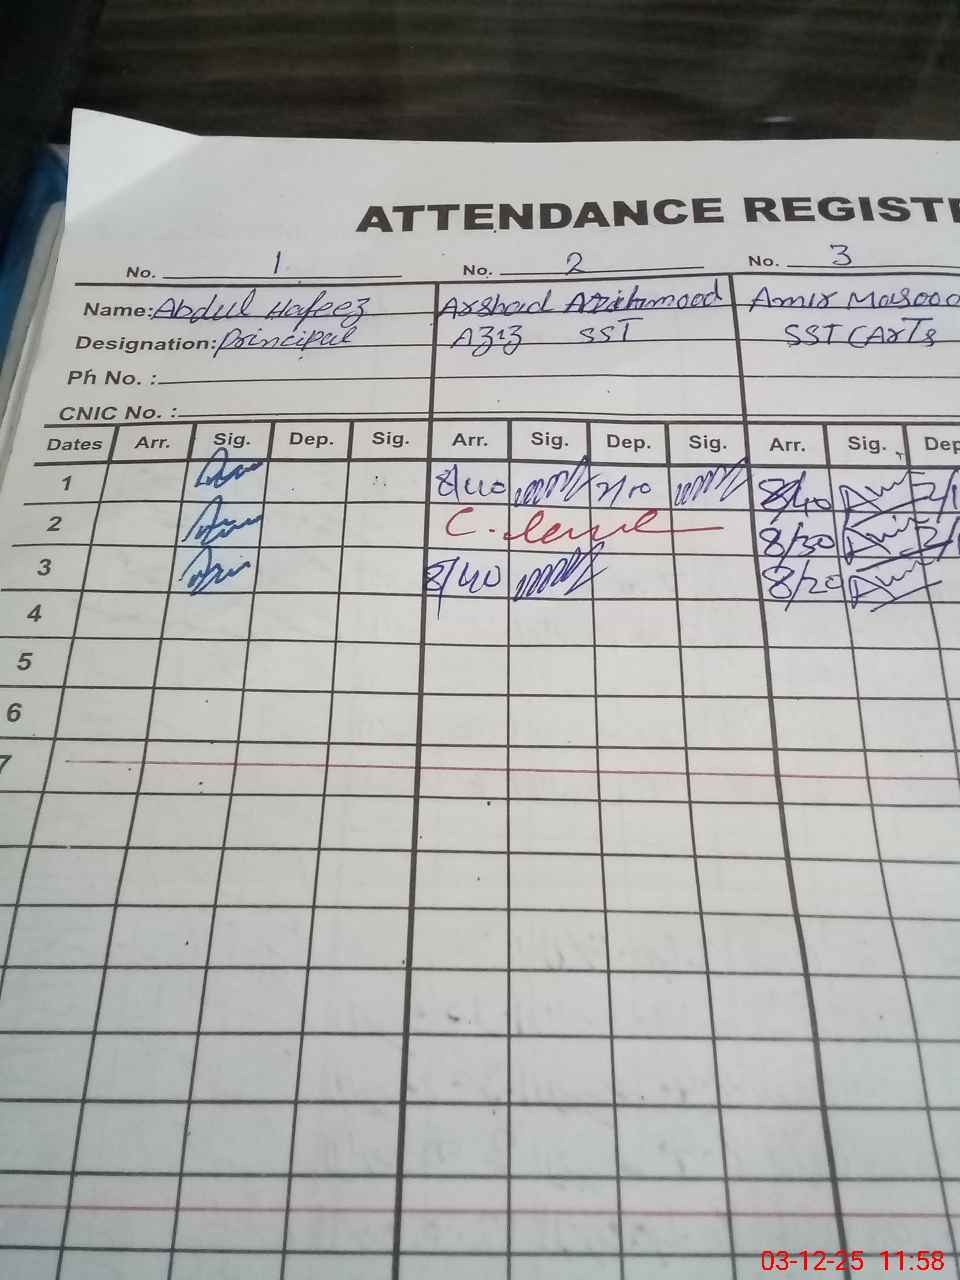 ATTENDANCE REGISTE
No. 1 No. 2 No. 3
Name: Abdul Hafeez Arshad Amir Masood
Designation: Principal Aziz SST SST (Arts
Ph No. :
CNIC No. :
Dates Arr. Sig. Dep. Sig. Arr. Sig. Dep. Sig. Arr. Sig. Dep
1 8/40 2/10 8/40 2/1
2 C. leave 8/30 2/1
3 8/40 8/20
4
5
6
7
03-12-25 11:58